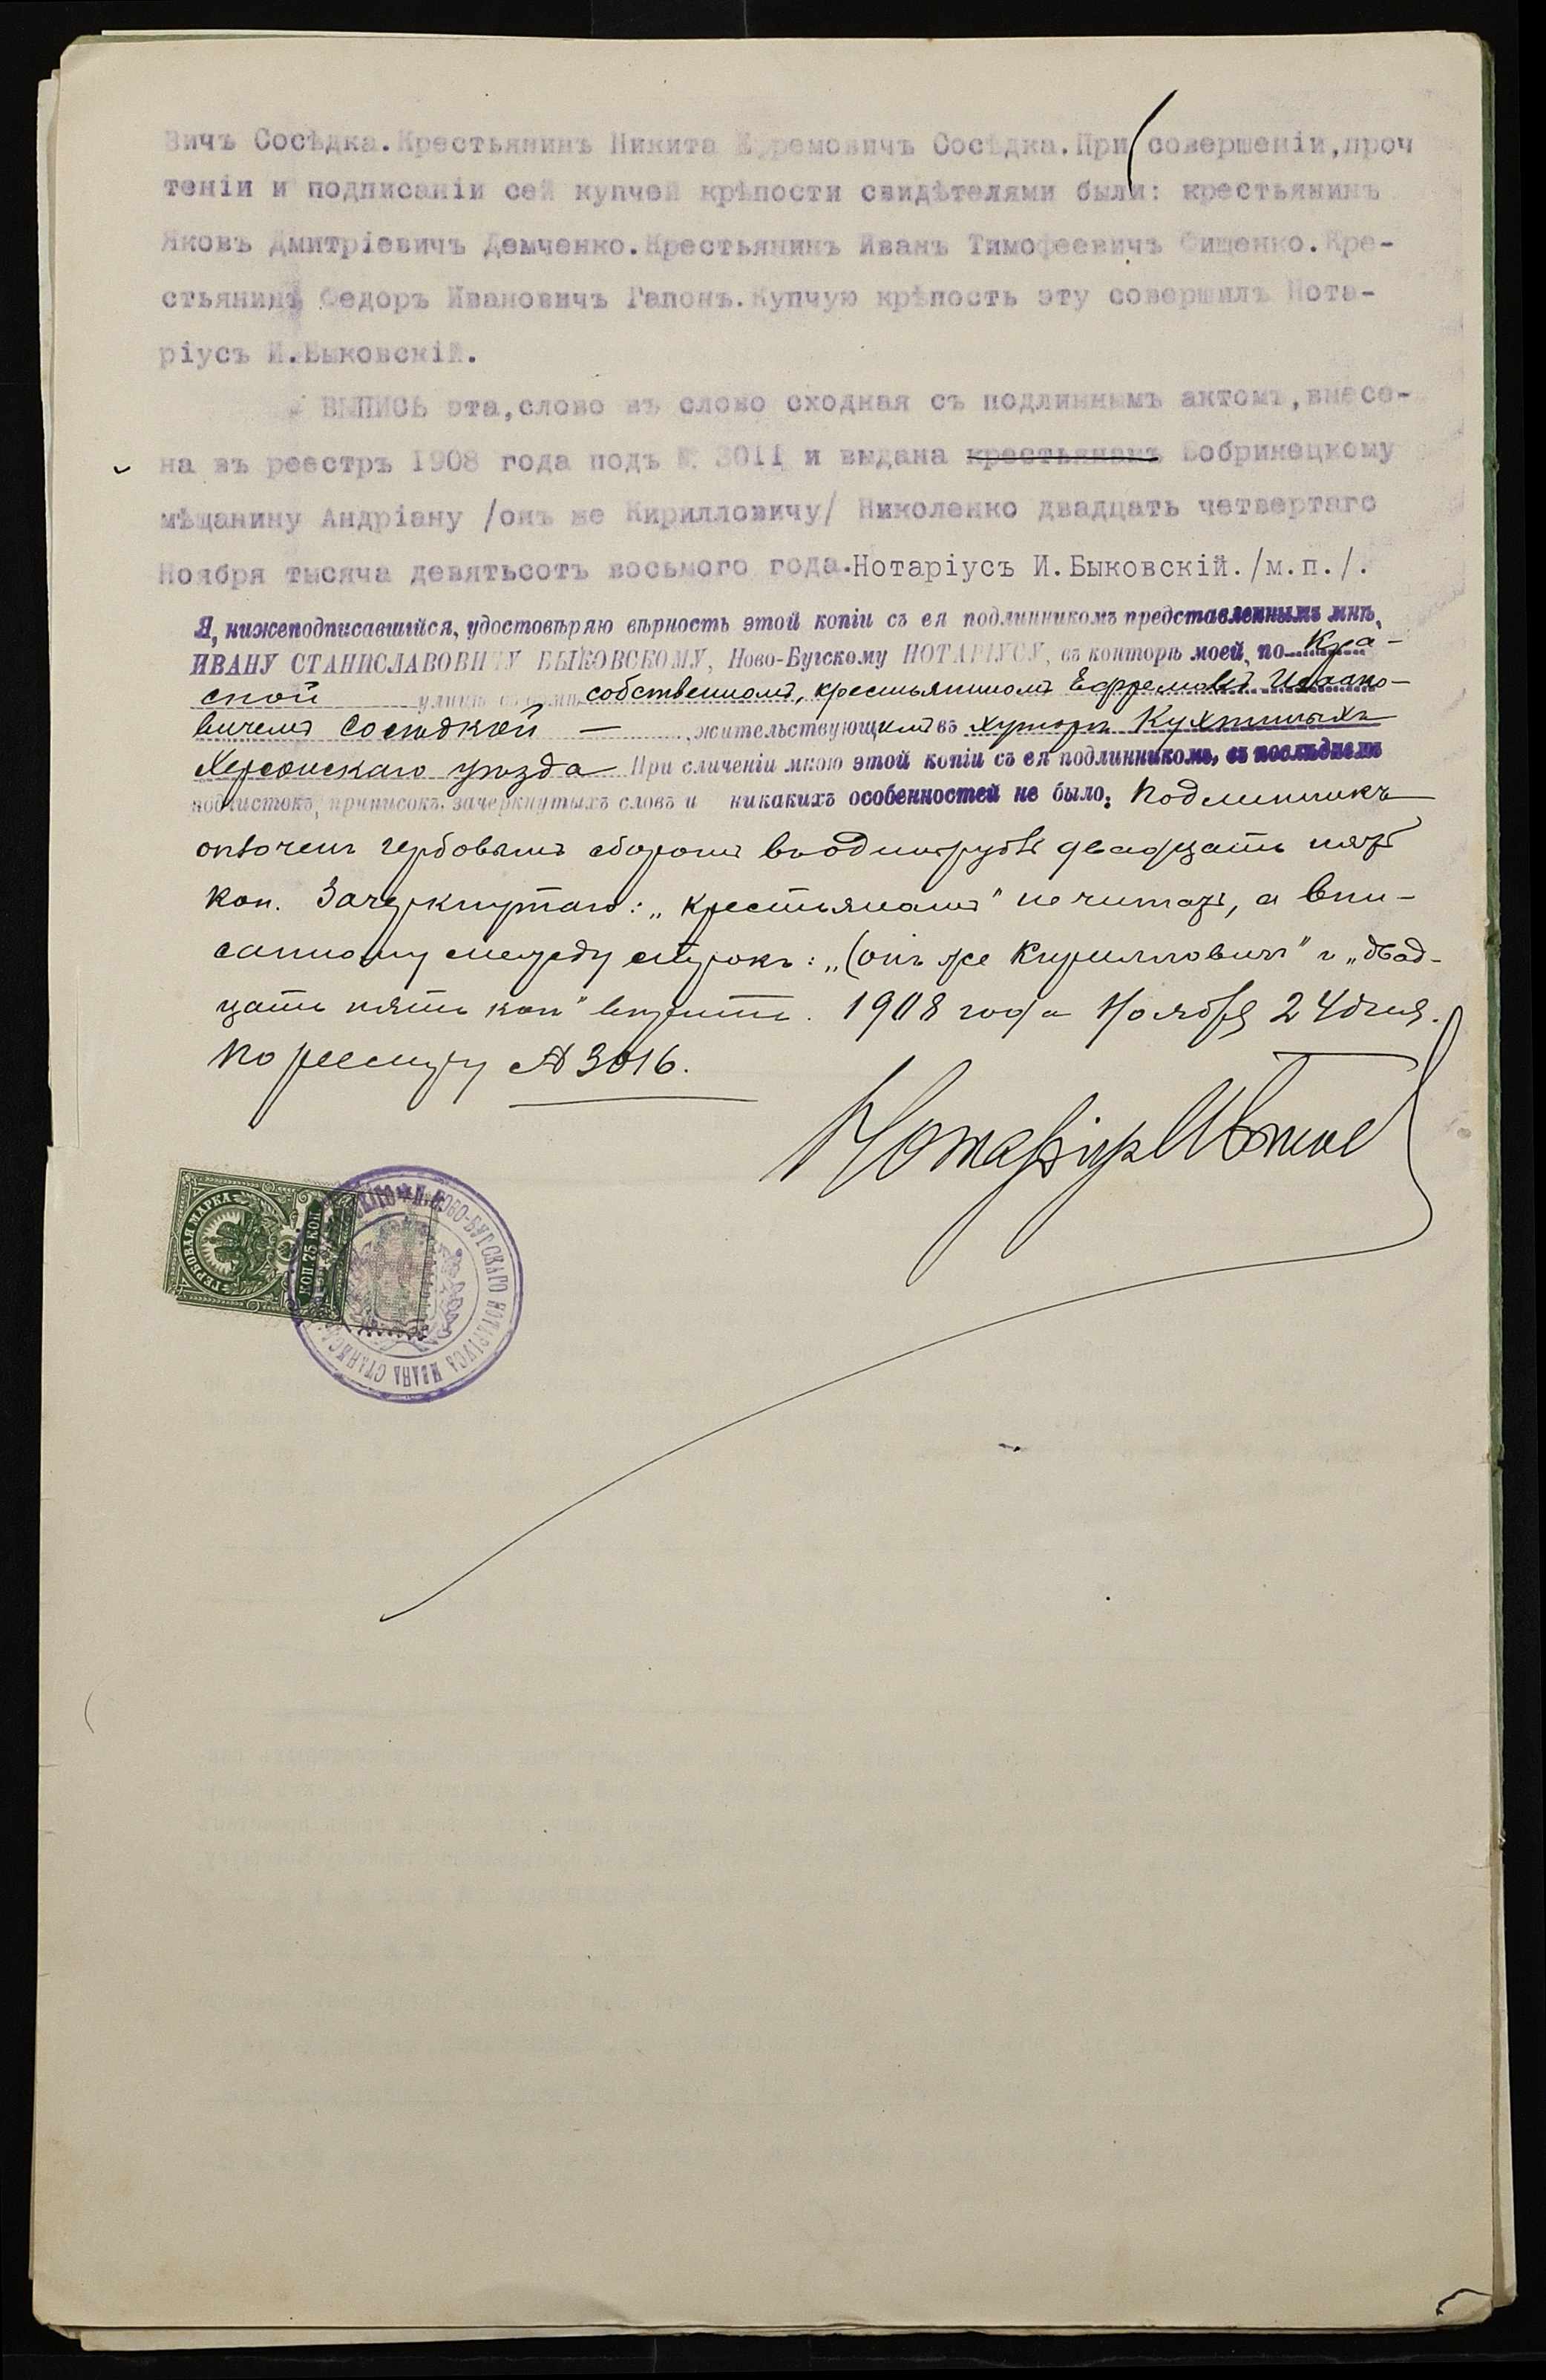 вичъ Сосѣдка.Крестьянинъ Никита Ефремовичъ Сосѣдка.При совершеніи,проч
теніи и подписаніи сей купчей крѣпости свидѣтелями были: крестьянинъ
Яковъ Дмитріевичъ Демченко.Крестьянинъ Иванъ Тимофеевичъ Фищенко.Кре-
стьянинъ Федоръ Ивановичъ Гапонъ.Купчую крѣпость эту совершилъ Нота-
ріусъ И.Быковскій.
ВЫПИСЬ эта,слово въ слово сходная съ подлиннымъ актомъ,внесе-
на въ реестръ 1908 года подъ № 3011 и выдана крестьянамъ Бобринецкому
мѣщанину Андріану /онъ же Кирилловичу/ Николенко двадцать четвертаго
Ноября тысяча девятьсотъ восьмого года.Нотаріусъ И.Быковскій./м.п./.
Я, нижеподписавшійся, удостовѣряю вѣрность этой копіи съ ея подлинникомъ представленнымъ мнѣ,
ИВАНУ СТАНИСЛАВОВИЧУ БЫКОВСКОМУ, Ново-Бугскому НОТАРІУСУ, въ конторѣ моей, по Кра-
сной улицѣ собственномъ, крестьяниномъ Ефремомъ Исаако-
вичемъ Сосѣдкой — жительствующимъ въ хуторѣ Кухтиныхъ
Херсонскаго уѣзда При сличеніи мною этой копіи съ ея подлинникомъ, въ послѣднемъ
подчистокъ, приписокъ, зачеркнутыхъ словъ и никакихъ особенностей не было. Подлинникъ
оплоченъ гербовымъ сборомъ въ одинъ рубль двадцать пять
коп. Зачеркнутаго: „крестьянамъ" не читать, а впи-
санному между строкъ: „(онъ же Кирилловичъ" и „двад-
цать пять коп" вѣрить. 1908 года Ноября 24 дня.
По реестру № 3016.
Нотаріусъ
ГЕРБОВАЯ МАРКА
КОП 25 КОП
Н.-НОВО-БУГСКАГО НОТАРІУСА ИВАНА СТАНИС